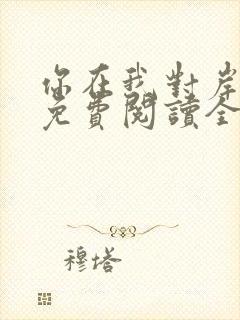 你在我對岸
免費閱讀全
穆塔